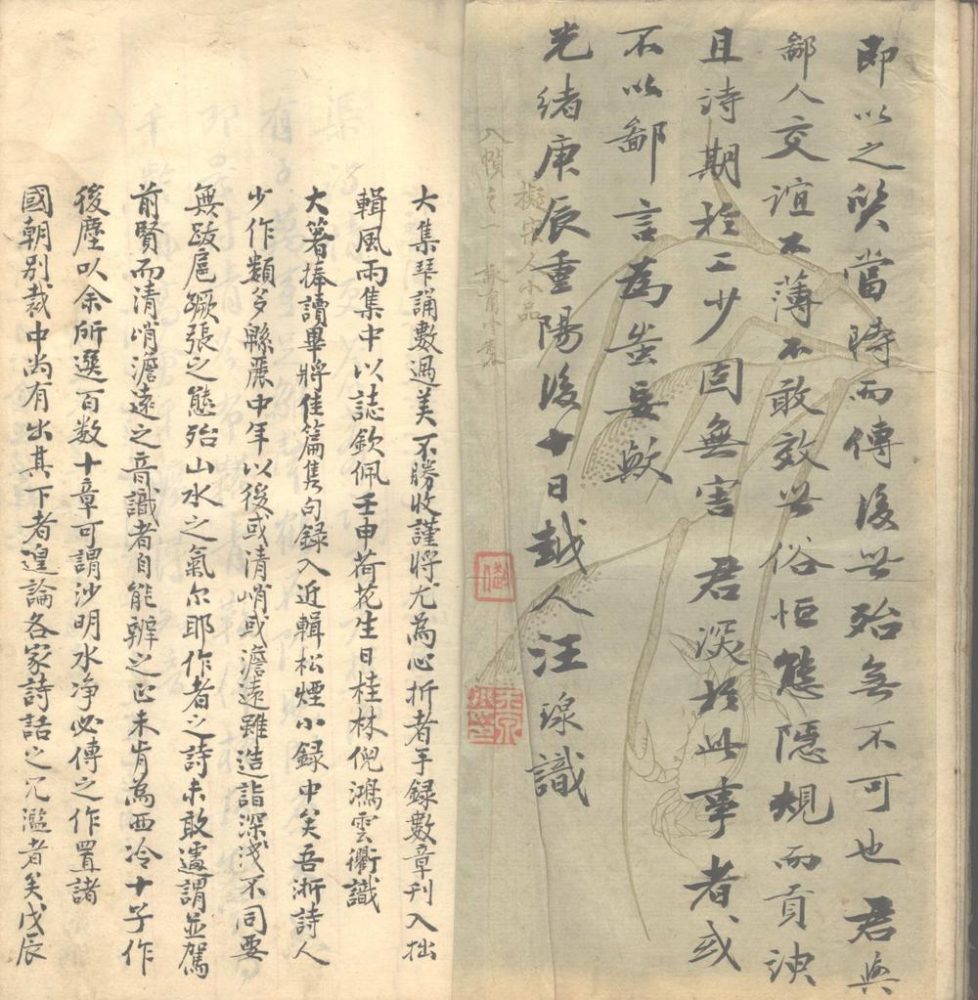 即以之問當時而傳後世殆無不可也君與
鄙人交誼不薄不敢效世俗恒態隱規而貢諛
且詩期於工少固無害君深於此事者或
不以鄙言為妄歟
光緒庚辰重陽後十日越人汪瑔識
擬宋人小品
大集琴誦數過美不勝收謹將尤為心折者手錄數章刊入拙
輯風雨集中以誌欽佩壬申荷花生日桂林倪鴻雲衢識
大箸捧讀畢將佳篇雋句錄入近輯松煙小錄中矣吾浙詩人
少作類多縣麗中年以後或清峭或澹遠雖造詣深淺不同要
無跋扈蹶張之態殆山水之氣尔耶作者之詩未敢遽謂並駕
前賢而清峭澹遠之音識者自能辨之正未肯為西泠十子作
後塵以余所選百数十章可謂沙明水净必傳之作置諸
國朝別裁中尚有出其下者遑論各家詩話之冗濫者矣戊辰